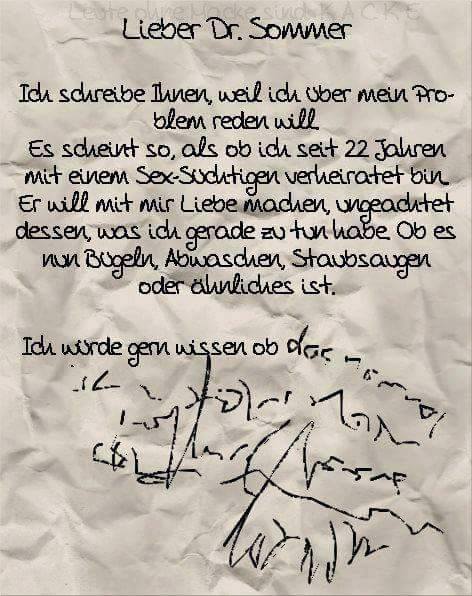 Leute ohne Macke sind K A C K E
Lieber Dr. Sommer
Ich schreibe Ihnen, weil ich über mein Pro-
blem reden will.
Es scheint so, als ob ich seit 22 Jahren
mit einem Sex-Süchtigen verheiratet bin.
Er will mit mir Liebe machen, ungeachtet
dessen, was ich gerade zu tun habe. Ob es
nun Bügeln, Abwaschen, Staubsaugen
oder ähnliches ist.
Ich würde gern wissen ob